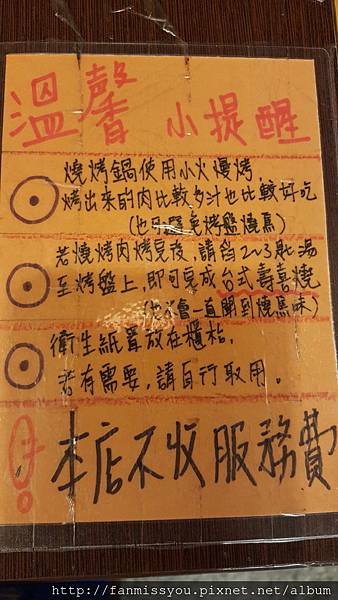 溫馨 小提醒
燒烤鍋使用小火慢烤,
烤出來的肉比較多汁也比較好吃
(也可避免烤盤燒焦)
若燒烤肉烤完後,請舀2~3匙湯
至烤盤上,即可完成台式壽喜燒
(也不會一直聞到燒焦味)
衛生紙置放在櫃枱,
若有需要,請自行取用。
本店不收服務費
http://fanmissyou.pixnet.net/album